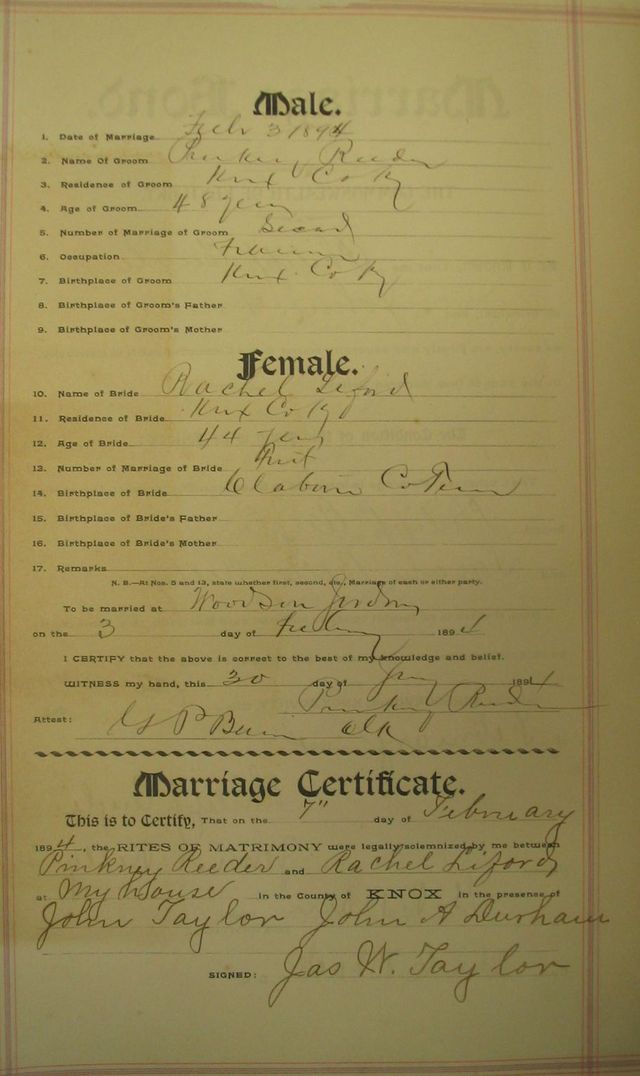 Male.
1. Date of Marriage Feb 3 1894
2. Name Of Groom Pinkney Reeder
3. Residence of Groom Knx Co Ky
4. Age of Groom 48 years
5. Number of Marriage of Groom Second
6. Occupation Farmer
7. Birthplace of Groom Knx Co Ky
8. Birthplace of Groom's Father
9. Birthplace of Groom's Mother
Female.
10. Name of Bride Rachel Liford
11. Residence of Bride Knx Co Ky
12. Age of Bride 44 years
13. Number of Marriage of Bride First
14. Birthplace of Bride Claborn Co Tenn
15. Birthplace of Bride's Father
16. Birthplace of Bride's Mother
17. Remarks
N. B.—At Nos. 5 and 13, state whether first, second, etc., Marriage of each or either party.
To be married at Woodson
on the 3 day of February 1894
I CERTIFY that the above is correct to the best of my knowledge and belief.
WITNESS my hand, this 30 day of Jany 1894
Pinkney Reeder
Attest: Clk
Marriage Certificate.
This is to Certify, That on the 7" day of February
1894, the RITES OF MATRIMONY were legally solemnized by me between
Pinkney Reeder and Rachel Liford
at My house in the County of KNOX in the presence of
John Taylor John A Durham
SIGNED: Jas W. Taylor